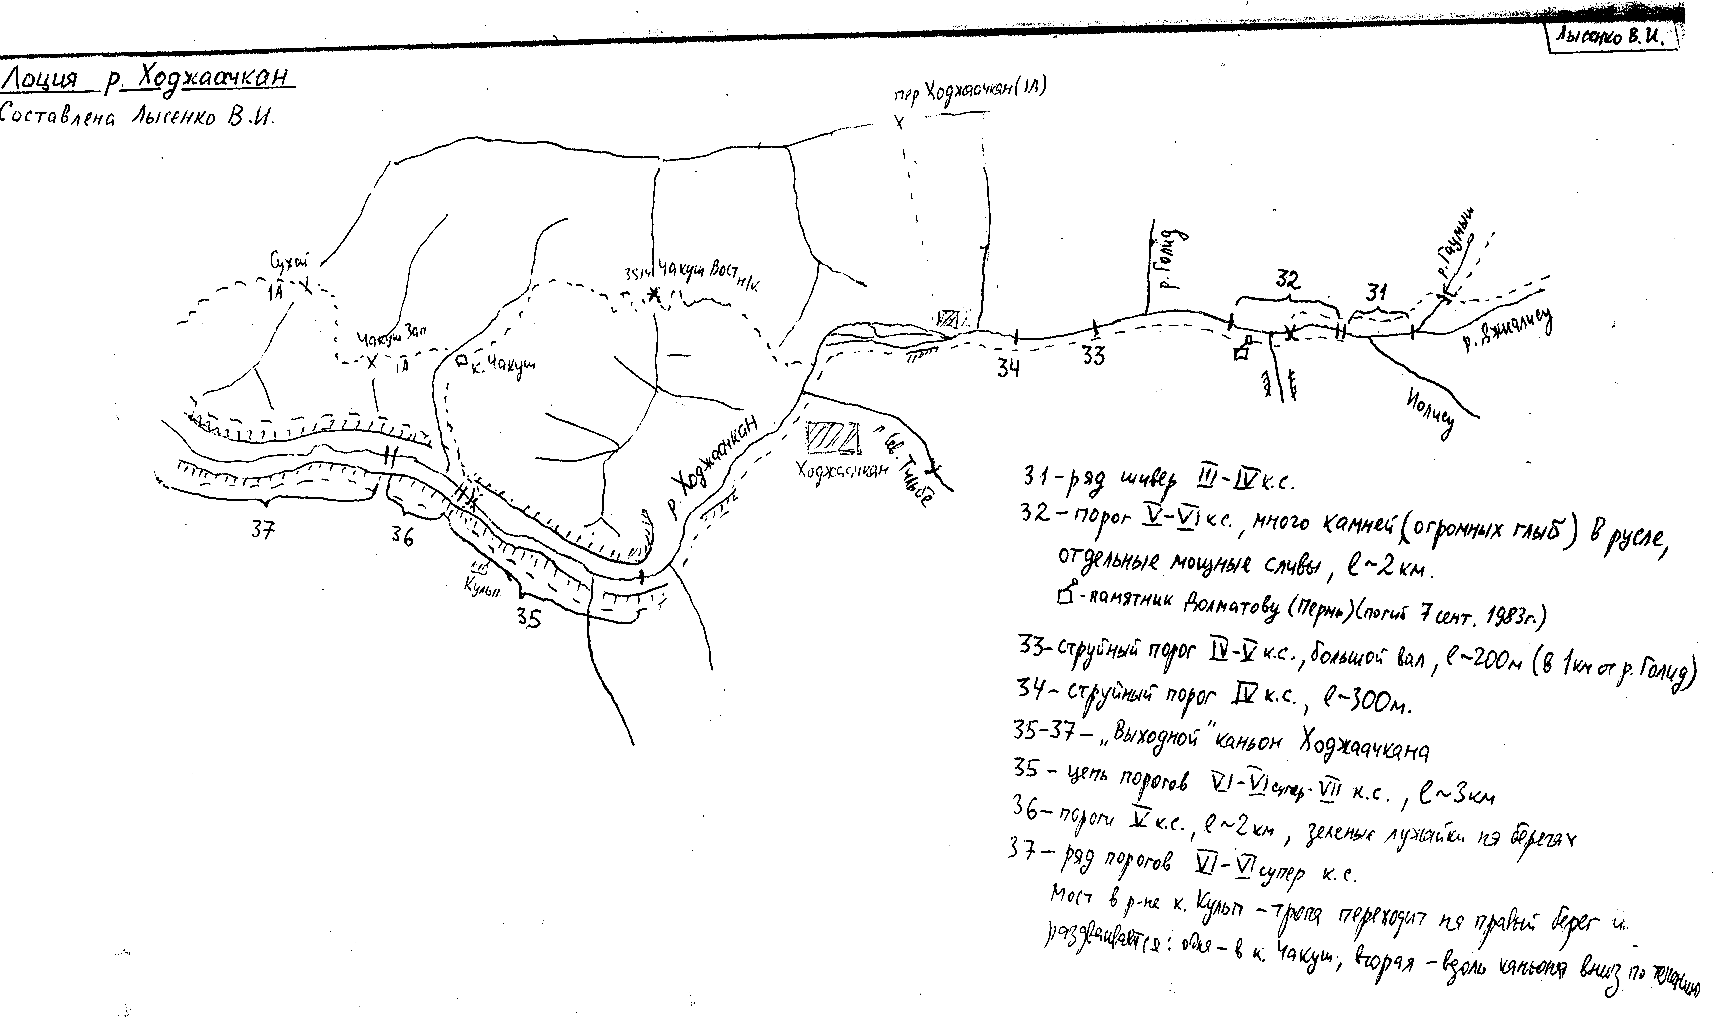 Лысенко В.И.
Лоция р. Ходжаачкан
Составлена Лысенко В.И.
пер Ходжаачкан (1А)
Сухой
1А
3514 Чакуш Вост
н/к
Чакуш Зап
1А
к. Чакуш
р. Голид
32
31
р. Гаумыш
р. Джиалису
Иолису
34
33
р. Ходжаачкан
Ходжаачкан
Сев. Тильбе
37
36
Кульп
35
31-ряд шивер III-IV к.с.
32-порог V-VI к.с., много камней (огромных глыб) в русле,
отдельные мощные сливы, l~2 км.
-памятник Долматову (Пермь) (погиб 7 сент. 1983г.)
33-струйный порог IV-V к.с., большой вал, l~200м (в 1км от р. Голид)
34-струйный порог IV к.с., l~300м.
35-37-„Выходной" каньон Ходжаачкана
35-цепь порогов VI-VI супер-VII к.с., l~3км
36-пороги V к.с., l~2км, зеленые лужайки на берегах
37-ряд порогов VI-VI супер к.с.
Мост в р-не к. Кульп - тропа переходит на правый берег и
раздваивается: одна - в к. Чакуш, вторая - вдоль каньона вниз по течению